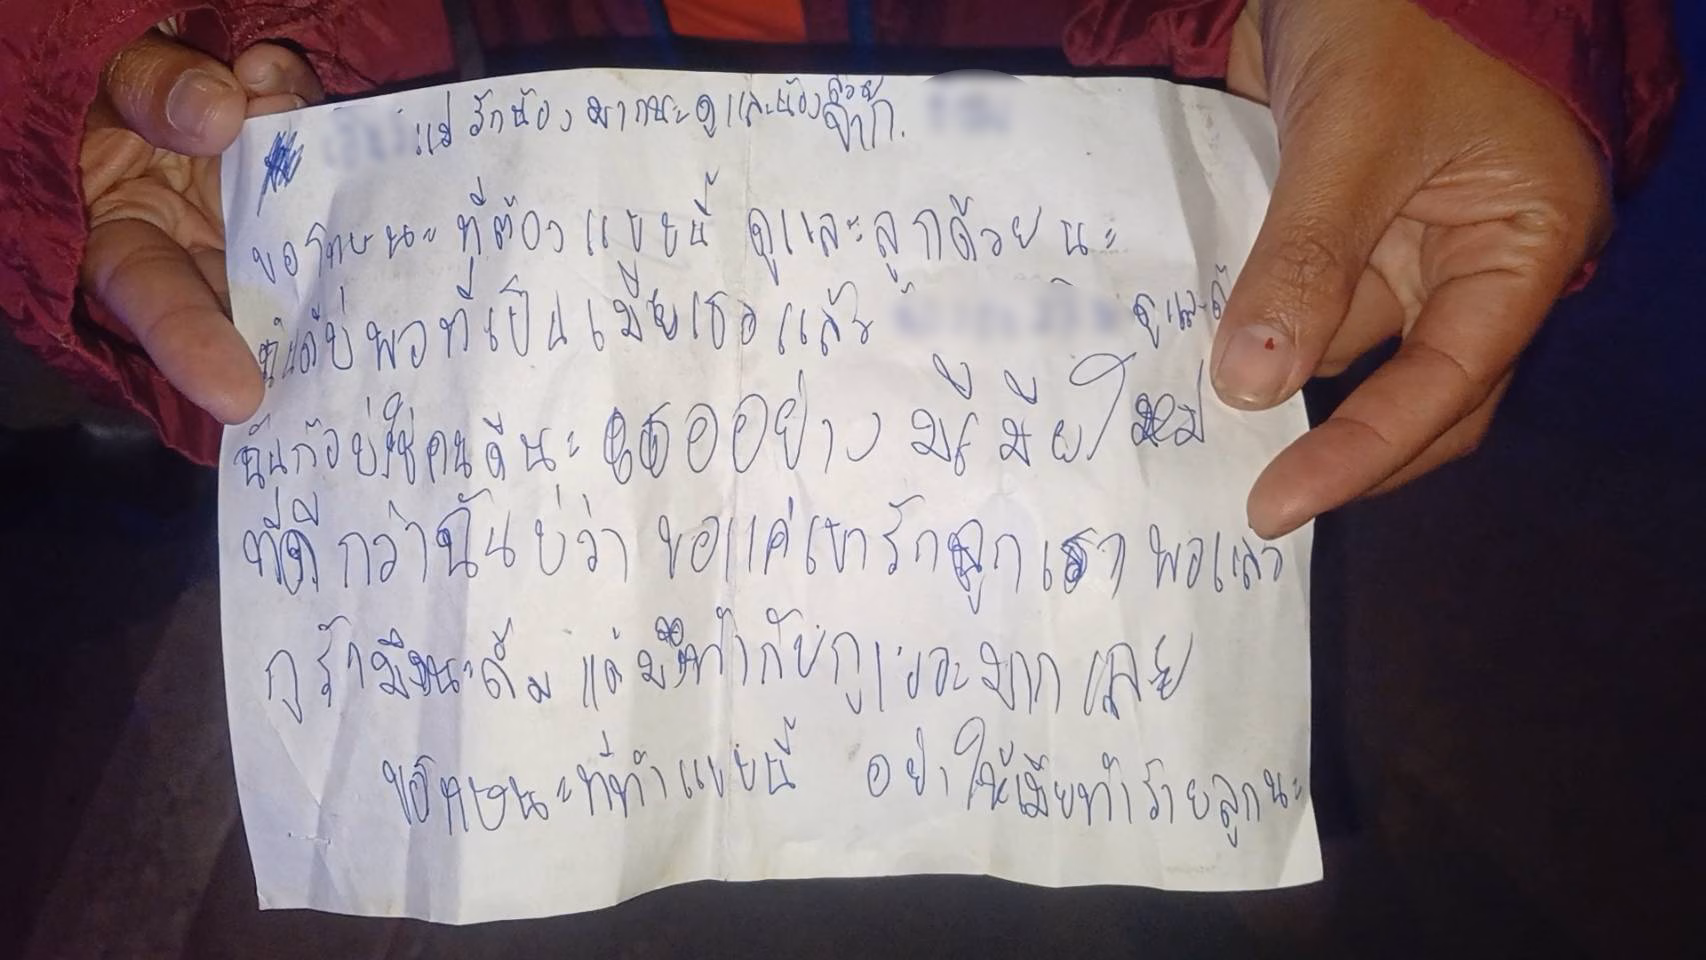 แม่รักน้องมากนะดูแลน้องด้วย
จาก.
ขอโทษนะที่ต้องแบบนี้ ดูแลลูกด้วยนะ
ฉันดีบ่พอที่เป็นเมียเธอแล้ว ดูแล
ฉันก๋อบ่ใช่คนดีนะ เธออย่า มีเมียใหม่
ที่ดีกว่าฉันบ่ว่า ขอแค่เขารักลูกเราพอแล้ว
กูรักมึงนะ แต่มึงทำกับกูเยอะมากเลย
ขอโทษนะที่ทำแบบนี้ อย่าให้เมียทำร้ายลูกนะ